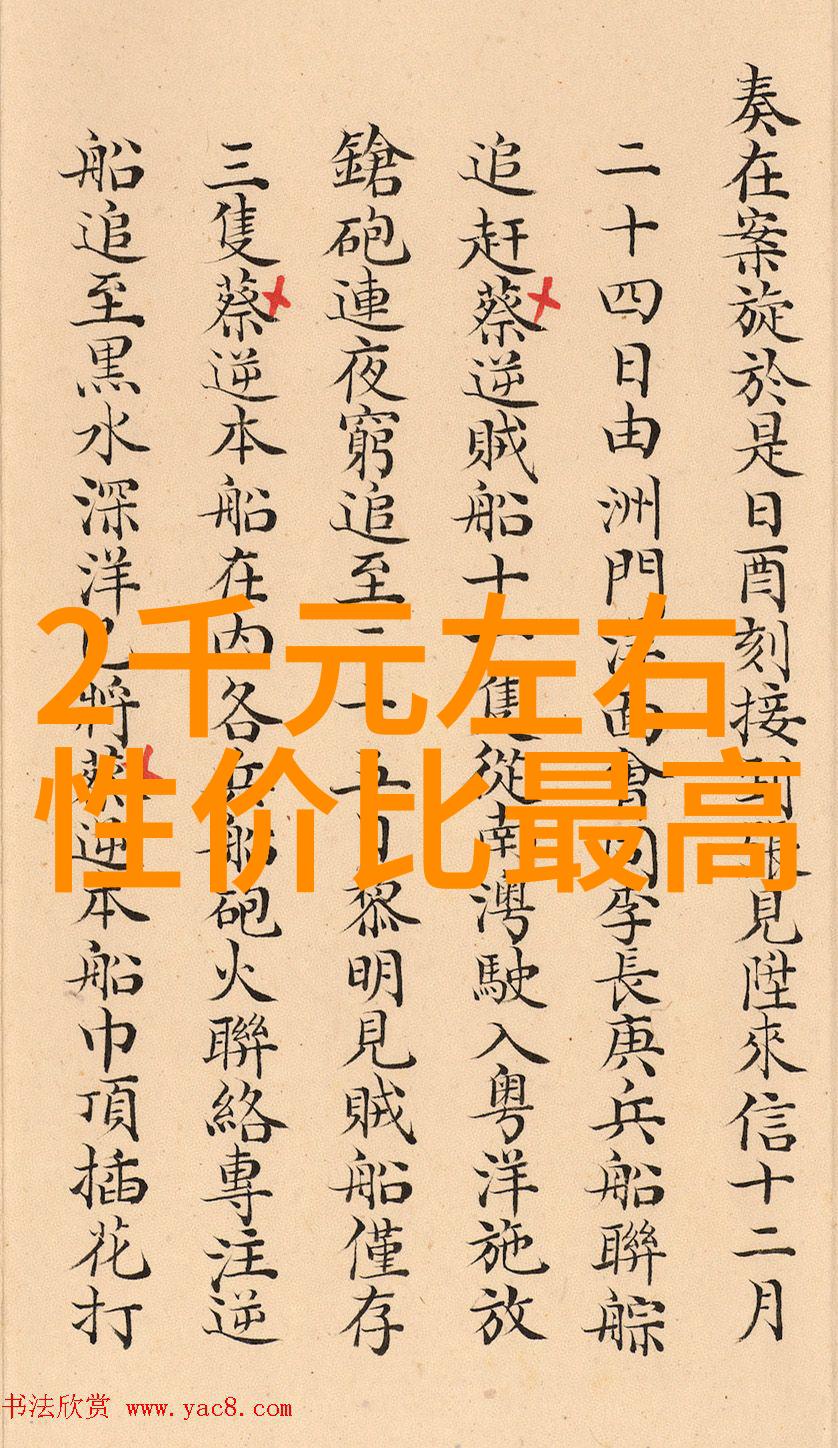 奏在案旋於是日酉刻接到張見陞來信十二月
二十四日由洲門洋面會同李長庚兵船聯䑸
追赶蔡逆賊船十一隻從南澳駛入粤洋施放
鎗砲連夜窮追至二十五日黎明見賊船僅存
三隻蔡逆本船在内各兵船砲火聯絡專注逆
船追至黒水深洋已將蔡逆本船巾頂插花打
2千元左右
性价比最高
书法欣赏 www.yac8.com